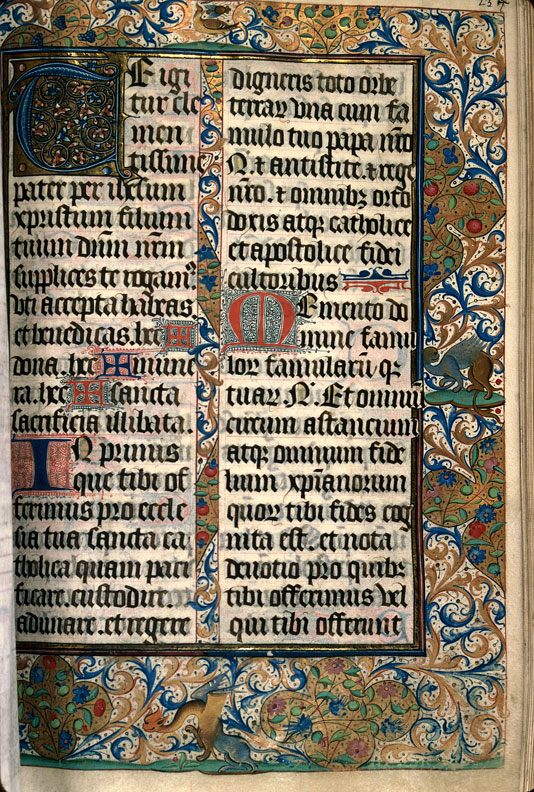 TE igi
tur cle
men
tissime
pater per ihesum
xpristum filium
tuum dn̄m nr̄m
supplices te rogam⁹
vti accepta habeas.
et benedicas. hec ✠
dona. hec ✠ mune
ra. hec ✠ sancta
sacrificia illibata.
IN primis
que tibi of
ferimus pro eccle
sia tua sancta ca
tholica quam paci
ficare. custodire
adunare. et regere
digneris toto orbe
terraꝝ vna cum fa
mulo tuo papa nr̄o
N. ⁊ antistite. ⁊ rege
nr̄o. ⁊ omnibꝫ orto
doxis atqꝫ catholice
et apostolice fidei
cultoribus
MEmento do
mine famu
loꝝ famularū qꝫ
tuaꝝ N. Et omniū
circum astancium
atqꝫ omnium fide
lium xp̄ianorum
quoꝝ tibi fides cog
nita est. et nota
deuotio pro quibꝫ
tibi offerimus vel
qui tibi offerunt